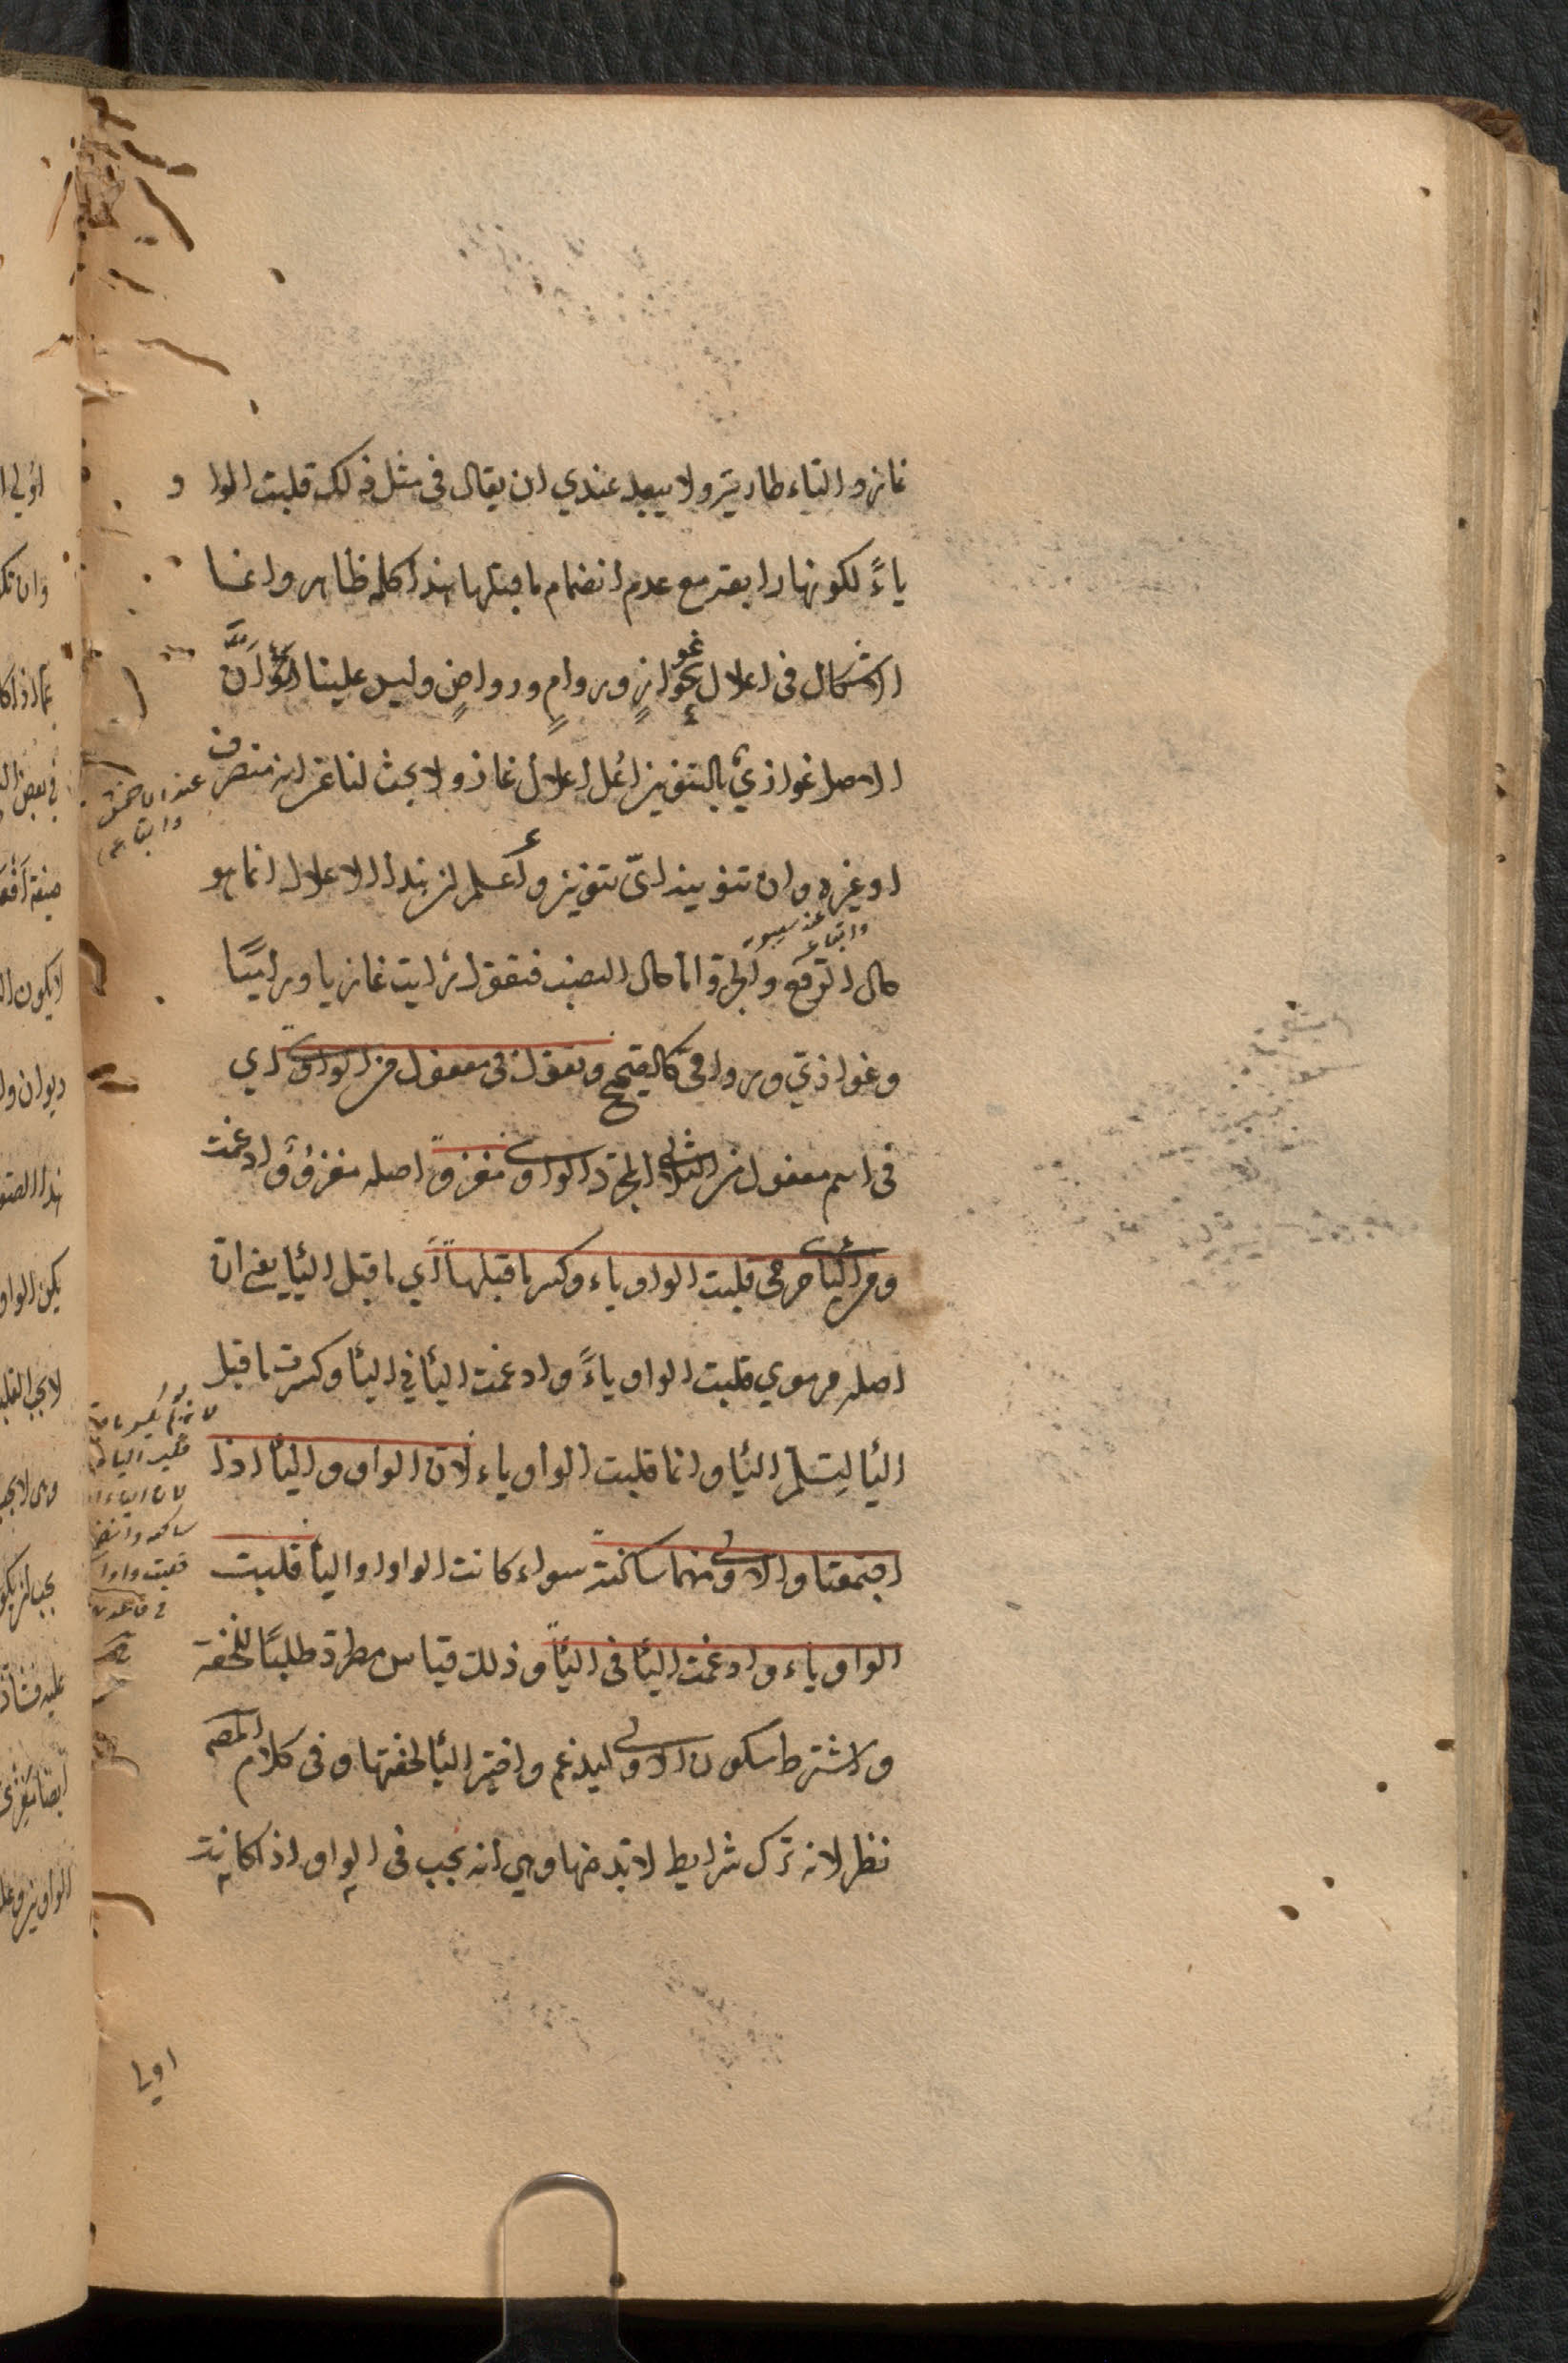 غاز والتاء طارية ولا يبعد عندي ان يقال في مثل ذلك قلبت الوا و
ياءً لكونها رابعة مع عدم انضمام ما قبلها هذا كله ظاهر وانما
الاشكال في اعلال نحو غوازٍ وروامٍ ورواضٍ وليس علينا الا ان نقول انّ
الاصل غوازيٌ بالتنوين اعل اعلال غاز ولا بحث لنا عن انه منصرف
او غيره وان تنوينه ايّ تنوين واعلم ان هذا الاعلال انما هو
حال الرفع والجر واما حال النصب فتقول رأيت غازيا وراميًا
وغوازي وروامي كالصحيح وتقول في مفعول من الواوي اي
في اسم مفعول من الثلاثي المجرد الواوي مغزوّ اصله مغزووٌ ادغمت
ومن اليائي مرمي قلبت الواو ياء وكسر ما قبلها اي ما قبل اليا يعني ان
اصله مرموي قلبت الواو ياءً وادغمت اليا في اليا وكسرت ما قبل
اليا ليسلم اليا وانما قلبت الواو ياء لان الواو واليا اذا
اجتمعتا والاولى منهما ساكنة سواء كانت الواو او اليا قلبت
الواو ياء وادغمت اليا في اليا وذلك قياس مطرد طلبًا للخفة
واشترط سكون الاولى ليدغم واختير اليا لخفتها وفي كلام المصـ
نظر لانه ترك شرايط لا بد منها وهي انه يجب في الواو اذا كانت
واتباعه
عند سيبويه
عند الاخفش
واتباعه
اولى